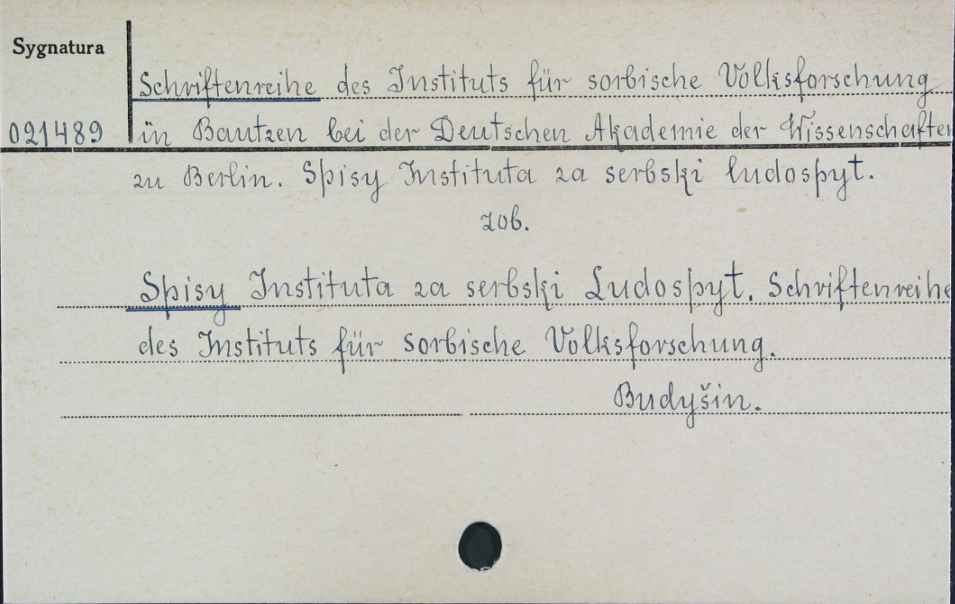 Sygnatura
Schriftenreihe des Instituts für sorbische Volksforschung
091489 in Bautzen bei der Deutschen Akademie der Wissenschaften
zu Berlin. Spisy Instituta za serbski ludospyt.
zob.
Spisy Instituta za serbski Ludospyt. Schriftenreihe
des Instituts für sorbische Volksforschung.
Budyšin.